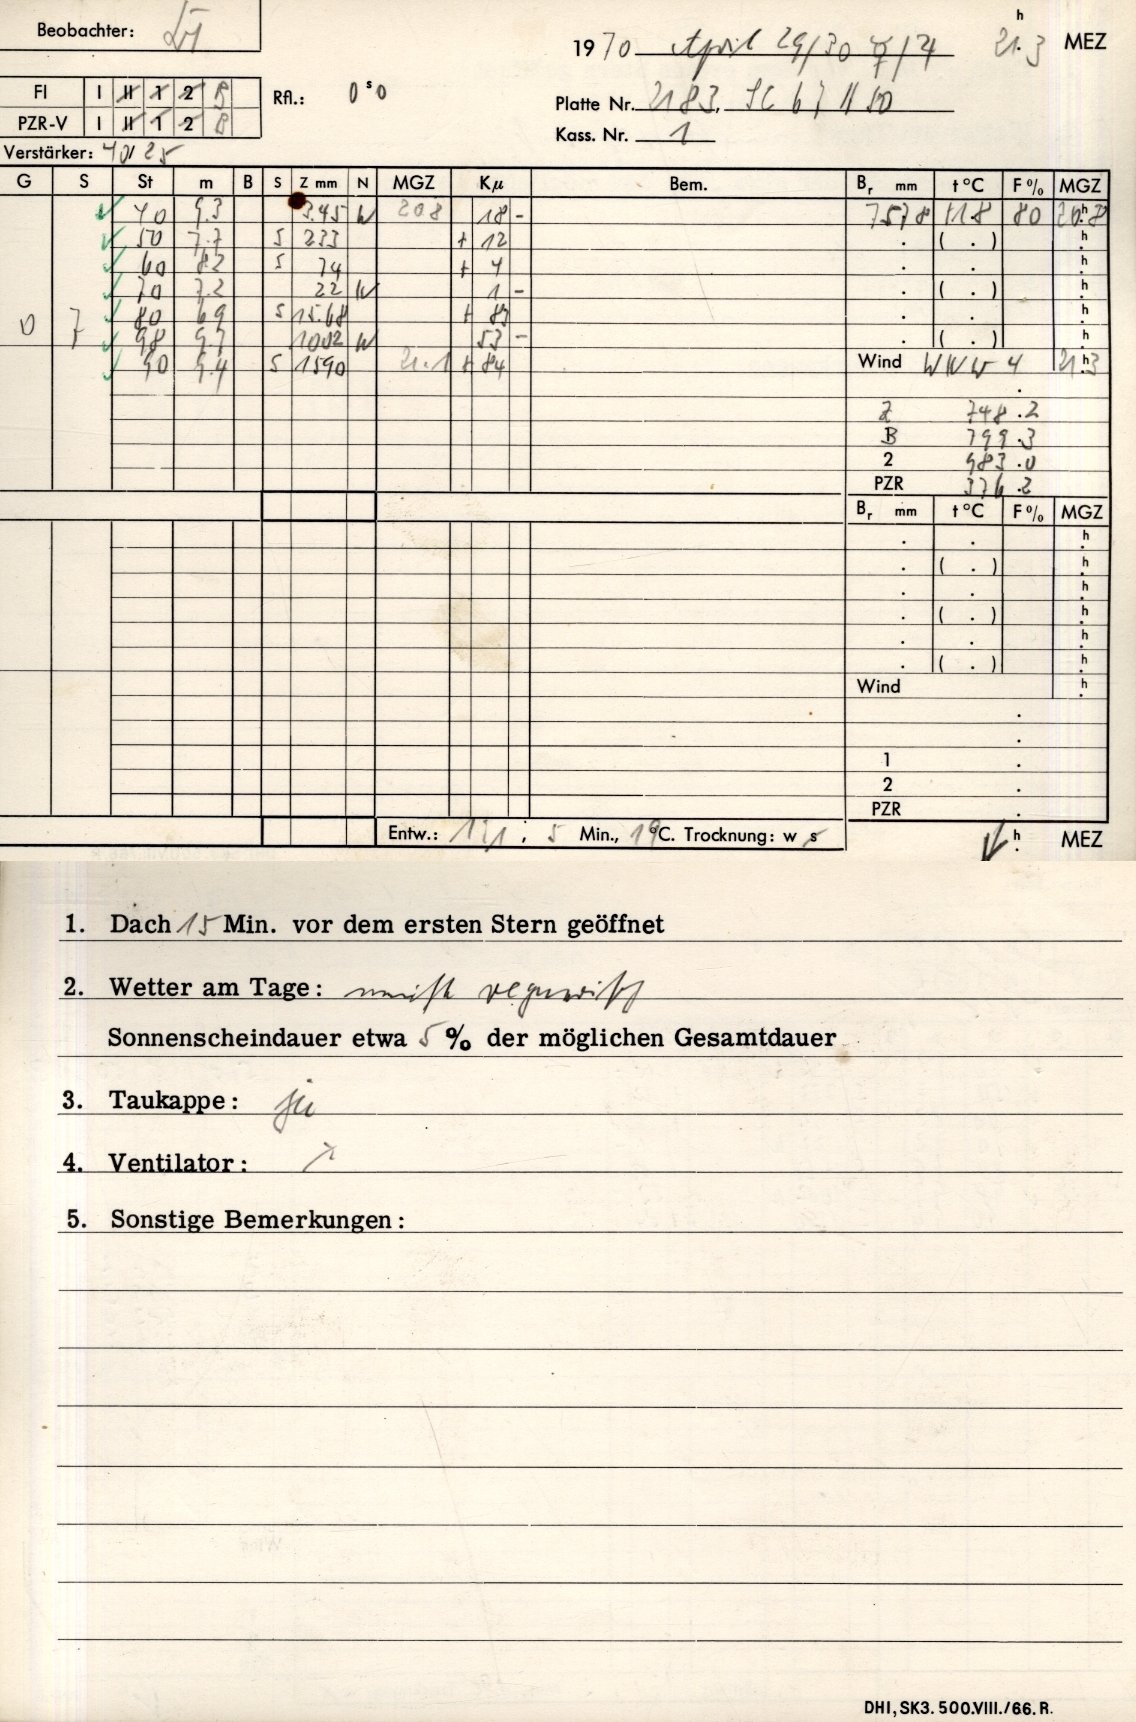 Beobachter:
1970 April 29/30 21.3 h MEZ
FI I II 1 2 B
Rfl.: 0 s 0
Platte Nr. 2183.
PZR-V I II 1 2 B
Kass. Nr. 1
Verstärker: 40/25
G S St m B S Z mm N MGZ Kµ Bem. Br mm t °C F % MGZ
40 9.3 3.45 W 20.8 18 - 757.8 11.8 80 20.8 h
50 7.7 S 233 + 12 . ( . ) h
60 8.2 S 74 + 4 . . h
70 7.2 22 W 1 - . ( . ) h
0 7 80 6.9 S 15.68 + 83 . . h
98 9.7 1002 W 53 - . ( . ) h
90 9.4 S 1590 21.1 + 84 Wind WNW 4 21.3 h
Z 748.2
B 799.3
2 983.0
PZR 376.2
Br mm t °C F % MGZ
. . h
. ( . ) h
. . h
. ( . ) h
. . h
. ( . ) h
Wind h
.
.
1 .
2 .
PZR .
Entw.: 1:1; 5 Min., 19 °C. Trocknung: w s h MEZ
1. Dach 15 Min. vor dem ersten Stern geöffnet
2. Wetter am Tage: meist regnerisch
Sonnenscheindauer etwa 5 % der möglichen Gesamtdauer
3. Taukappe: ja
4. Ventilator:
5. Sonstige Bemerkungen:
DHI, SK3. 500.VIII./66. R.